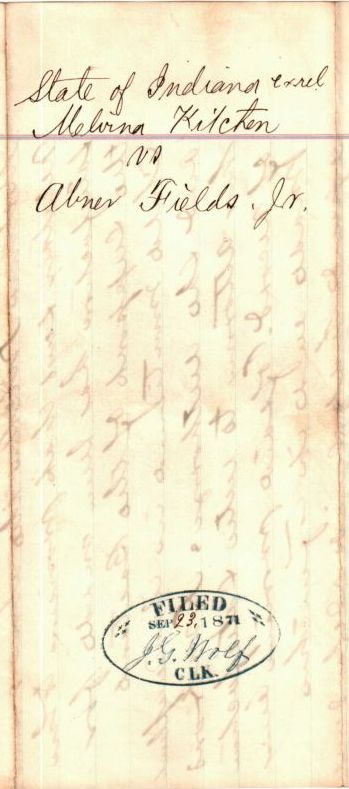 State of Indiana exrel
Melvina Kitchen
vs
Abner Fields. Jr.
FILED
SEP 23, 1871
J. G. Wolf
CLK.